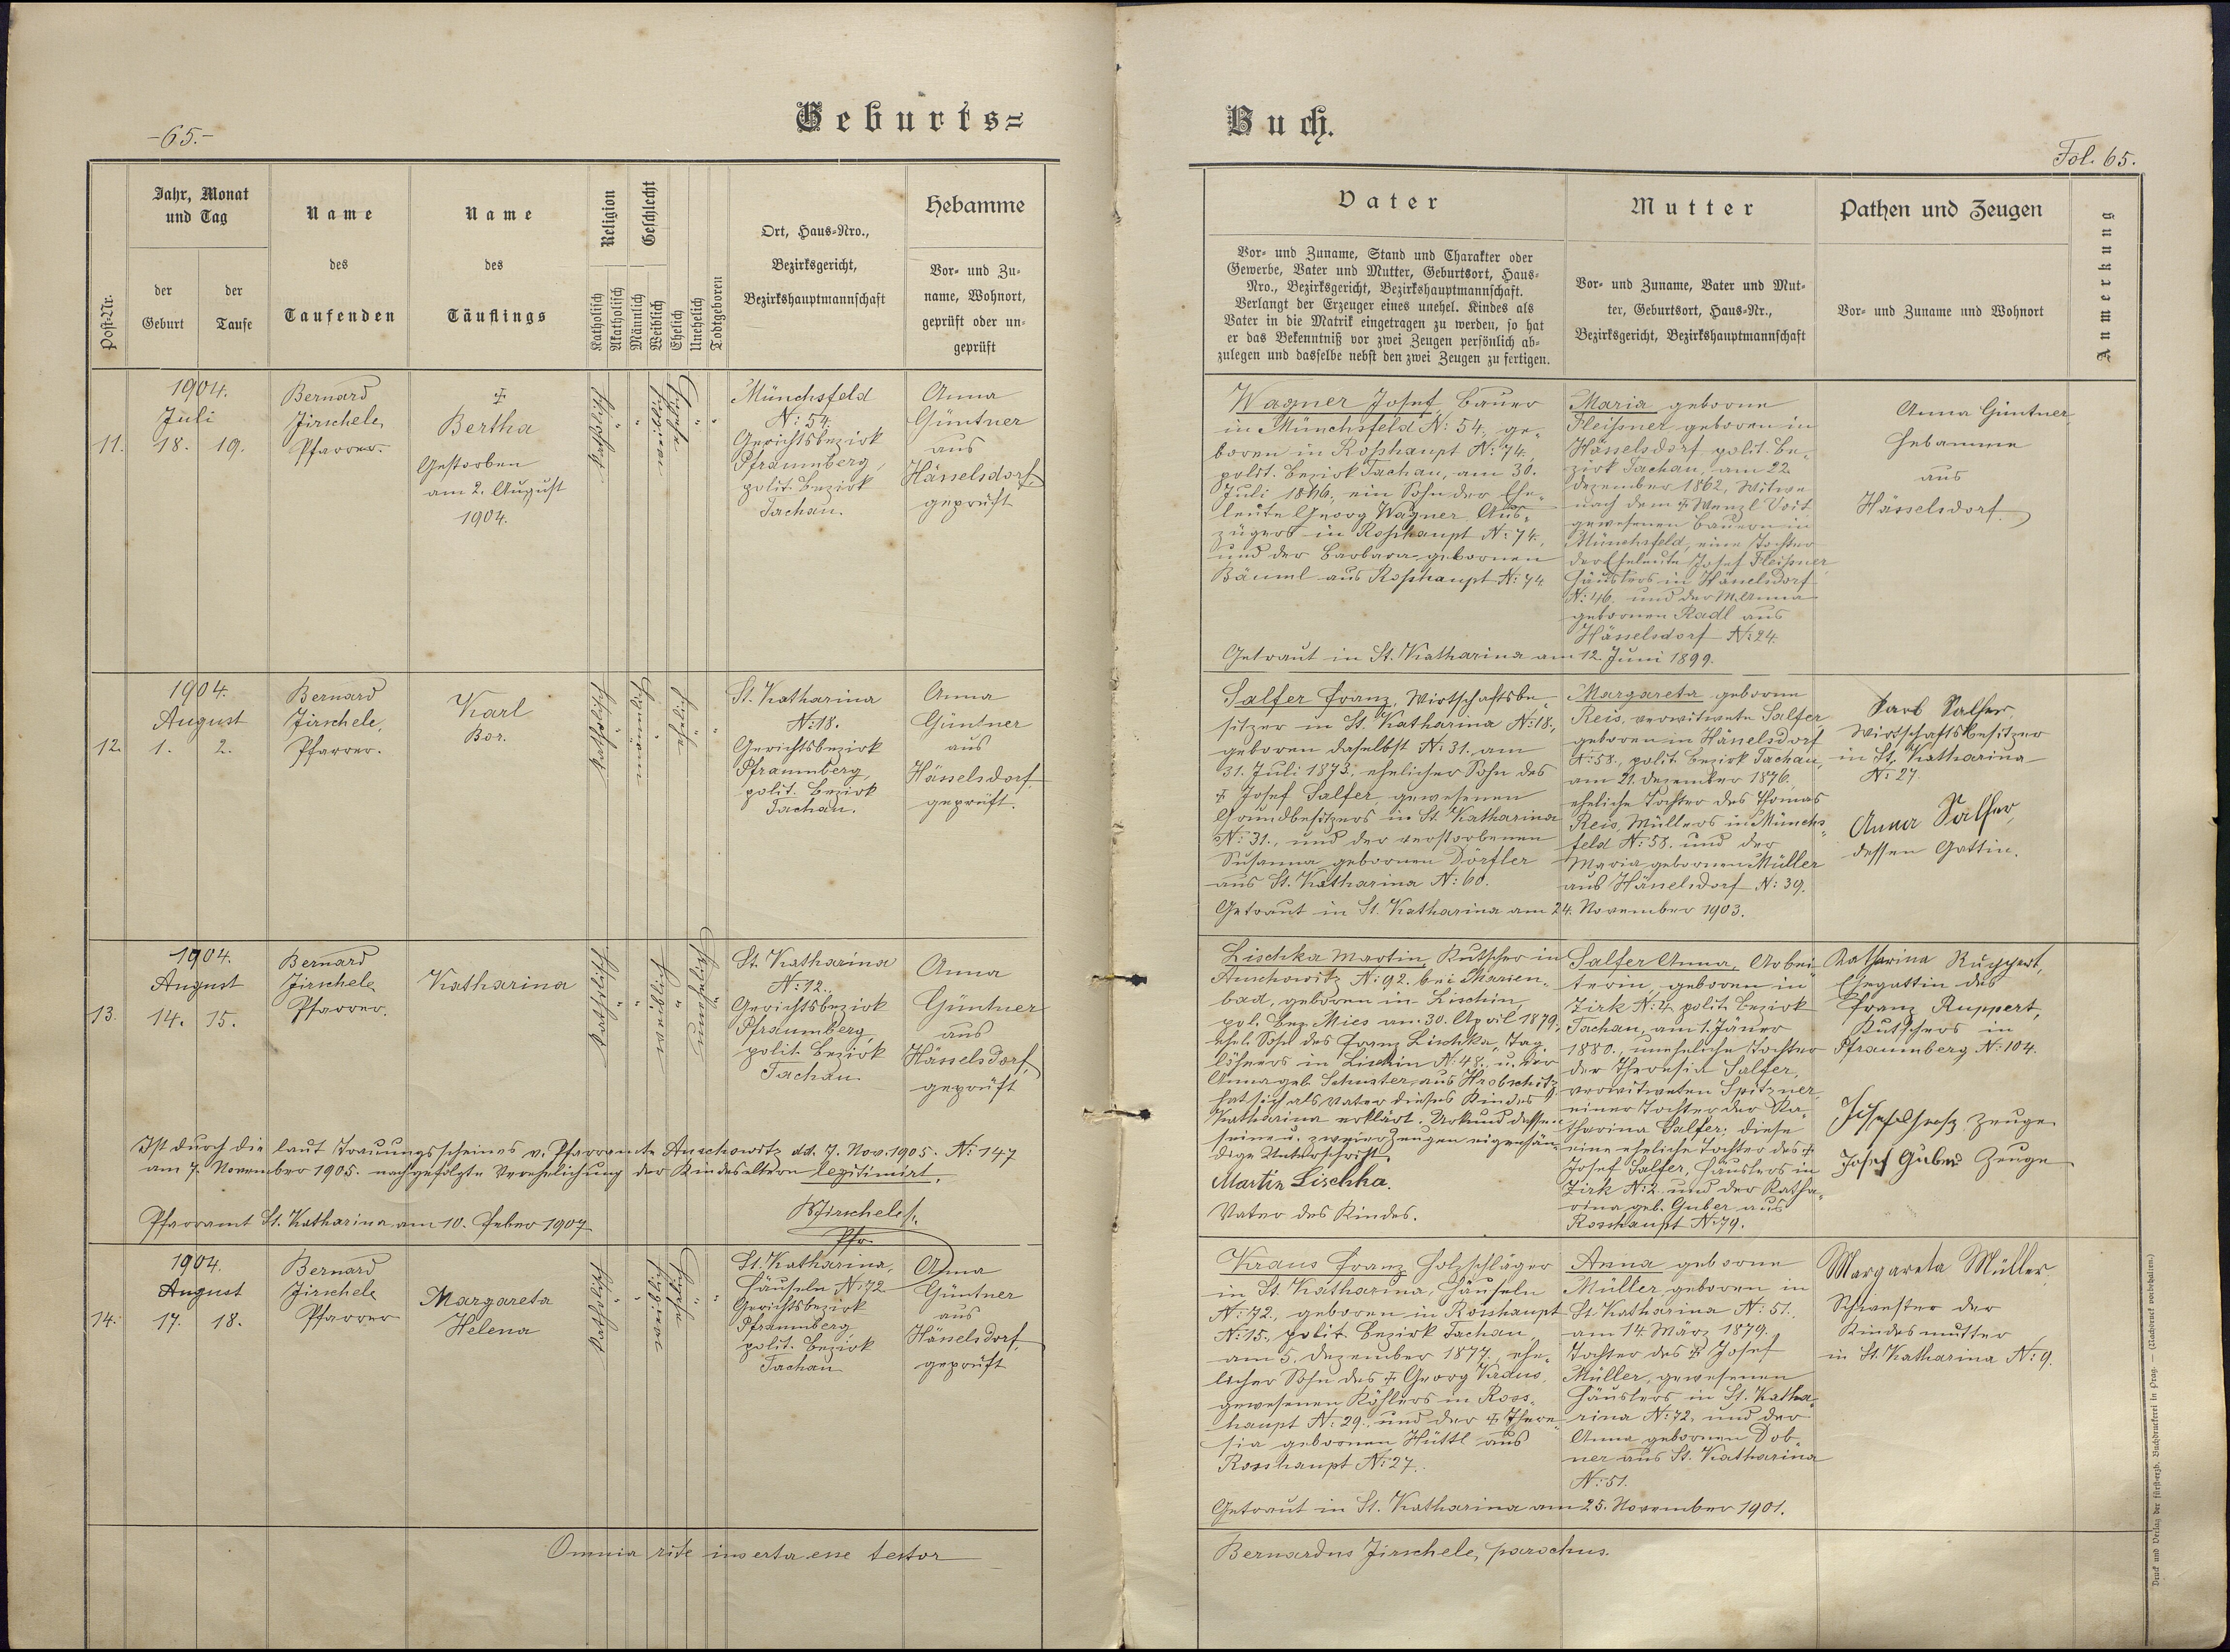 Geburts=
Buch.
-65.-
Fol. 65.
Post-Nr.
Jahr, Monat
und Tag
der
Geburt
der
Taufe
Name
des
Taufenden
Name
des
Täuflings
Religion
Katholisch
Akatholisch
Geschlecht
Männlich
Weiblich
Ehelich
Unehelich
Todtgeboren
Ort, Haus-Nro.,
Bezirksgericht,
Bezirkshauptmannschaft
Hebamme
Vor- und Zu-
name, Wohnort,
geprüft oder un-
geprüft
Vater
Vor- und Zuname, Stand und Charakter oder
Gewerbe, Vater und Mutter, Geburtsort, Haus-
Nro., Bezirksgericht, Bezirkshauptmannschaft.
Verlangt der Erzeuger eines unehel. Kindes als
Vater in die Matrik eingetragen zu werden, so hat
er das Bekenntniß vor zwei Zeugen persönlich ab-
zulegen und dasselbe nebst den zwei Zeugen zu fertigen.
Mutter
Vor- und Zuname, Vater und Mut-
ter, Geburtsort, Haus-Nr.,
Bezirksgericht, Bezirkshauptmannschaft
Pathen und Zeugen
Vor- und Zuname und Wohnort
Anmerkung
11.
1904.
Juli
18. 19.
Bernard
Jirschele,
Pfarrer.
✠
Bertha
Gestorben
am 2. August
1904.
Katholisch
"
Münchsfeld
N: 54.
Gerichtsbezirk
Pfraumberg,
polit. Bezirk
Tachau.
Anna
Güntner
aus
Hässelsdorf,
geprüft
Wagner Josef, Bauer
in Münchsfeld N: 54, ge-
boren in Roßhaupt N: 74,
polit. Bezirk Tachau, am 30.
Juli 1866, ein Sohn der Ehe-
leute Georg Wagner, Aus-
züglers in Roßhaupt N: 74,
und der Barbara gebornen
Bäuml aus Roßhaupt N: 74
Maria geborne
Fleißner geboren in
Hässelsdorf polit. Be-
zirk Tachau, am 22.
Dezember 1862, Witwe
nach dem ✠ Wenzl Voit
gewesenen Bauern in
Münchsfeld, eine Tochter
der Eheleute Josef Fleißner,
Häuslers in Hässelsdorf
N: 46. und der M. Anna
gebornen Radl aus
Hässelsdorf N: 24.
Anna Güntner,
Hebamme
aus
Hässelsdorf
Getraut in St. Katharina am 12. Juni 1899.
12.
1904.
August
1. 2.
Bernard
Jirschele,
Pfarrer.
Karl
Bor.
Katholisch
St. Katharina
N: 18.
Gerichtsbezirk
Pfraumberg,
polit. Bezirk
Tachau.
Anna
Güntner
aus
Hässelsdorf,
geprüft.
Salfer Franz, Wirtschaftsbe-
sitzer in St. Katharina N: 18.,
geboren daselbst N: 31. am
31. Juli 1873, ehelicher Sohn des
✠ Josef Salfer, gewesenen
Grundbesitzers in St. Katharina
N: 31., und der verstorbenen
Susanna gebornen Dörfler
aus St. Katharina N: 60.
Margareta geborne
Reis, verwitwete Salfer,
geboren in Hässelsdorf
N: 58., polit. Bezirk Tachau,
am 21. Dezember 1876,
eheliche Tochter des Thomas
Reis, Müllers in Münchs-
feld N: 58. und der
Maria gebornen Müller
aus Hässelsdorf N: 39.
Karl Salfer,
Wirtschaftsbesitzer
in St. Katharina
N: 27.
Anna Salfer,
dessen Gattin.
Getraut in St. Katharina am 24. November 1903.
13.
1904.
August
14. 15.
Bernard
Jirschele,
Pfarrer.
Katharina
Katholisch
St. Katharina
N: 12.,
Gerichtsbezirk
Pfraumberg,
polit. Bezirk
Tachau.
Anna
Güntner
aus
Hässelsdorf,
geprüft
Lischka Martin, Kutscher in
Auschowitz N: 92. bei Marien-
bad, geboren in Lischin,
pol. Bez. Mies am 30. April 1879,
ehel. Sohn des Franz Lischka, Tag-
löhners in Lischin N: 48., u. der
Anna geb. Schuster aus Hrobschitz
hat sich als Vater dieses Kindes
Katharina erklärt. Urkund dessen
seine u. zweier Zeugen eigenhän-
dige Unterschrift.
Martin Lischka.
Vater des Kindes.
Salfer Anna, Arbei-
terin, geboren in
Zirk N: 4, polit. Bezirk
Tachau, am 1. Jäner
1880., uneheliche Tochter
der Theresia Salfer,
verwitweten Spitzner
einer Tochter der Ka-
tharina Salfer; diese
eine eheliche Tochter des ✠
Josef Salfer, Häuslers in
Zirk N: 2. und der Katha-
rina geb. Guber aus
Rosshaupt N: 79.
Katharina Ruppert,
Ehegattin des
Franz Ruppert,
Kutschers in
Pfraumberg N: 104.
Zeuge
Josef Guber Zeuge
Ist durch die laut Trauungsscheines v. Pfarramte Auschowitz dd. 7. Nov. 1905. N: 147
am 7. November 1905. nachgefolgte Verehelichung der Kindesältern legitimirt.
Pfarramt St. Katharina am 10. Feber 1907
BJirschele
Pfr.
14.
1904.
August
17. 18.
Bernard
Jirschele
Pfarrer
Margareta
Helena
Katholisch
St. Katharina,
Häuseln N: 72
Gerichtsbezirk
Pfraumberg
polit. Bezirk
Tachau
Anna
Güntner
aus
Hässelsdorf,
geprüft
Kraus Franz Holzschläger
in St. Katharina, Häuseln
N: 72., geboren in Rosshaupt
N: 15., polit. Bezirk Tachau
am 5. Dezember 1877, ehe-
licher Sohn des ✠ Georg Kraus,
gewesenen Köhlers in Ross-
haupt N: 29., und der ✠ There-
sia gebornen Hüttl aus
Rosshaupt N: 27.
Anna geborne
Müller, geboren in
St. Katharina N: 51.
am 14. März 1879.,
Tochter des ✠ Josef
Müller, gewesenen
Häuslers in St. Katha-
rina N: 72. und der
Anna gebornen Dob-
ner aus St. Katharina
N: 51.
Margareta Müller,
Schwester der
Kindesmutter
in St. Katharina N: 9.
Getraut in St. Katharina am 25. November 1901.
Omnia rite inserta esse testor
Bernardus Jirschele, parochus.
Druck und Verlag der fürsterzb. Buchdruckerei in Prag. — (Nachdruck vorbehalten.)